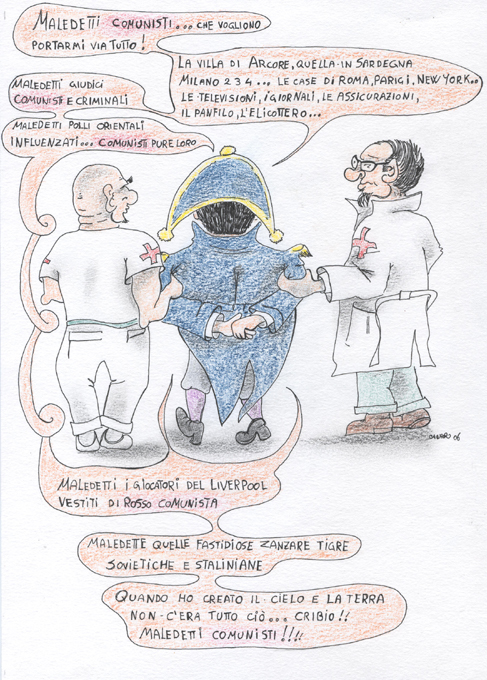 MALEDETTI COMUNISTI... CHE VOGLIONO
PORTARMI VIA TUTTO!
LA VILLA DI ARCORE, QUELLA IN SARDEGNA
MILANO 2 3 4..., LE CASE DI ROMA, PARIGI, NEW YORK...
LE TELEVISIONI, I GIORNALI, LE ASSICURAZIONI,
IL PANFILO, L'ELICOTTERO...
MALEDETTI GIUDICI
COMUNISTI E CRIMINALI
MALEDETTI POLLI ORIENTALI
INFLUENZATI... COMUNISTI PURE LORO
MALEDETTI I GIOCATORI DEL LIVERPOOL
VESTITI DI ROSSO COMUNISTA
MALEDETTE QUELLE FASTIDIOSE ZANZARE TIGRE
SOVIETICHE E STALINIANE
QUANDO HO CREATO IL CIELO E LA TERRA
NON C'ERA TUTTO CIÒ... CRIBIO!!
MALEDETTI COMUNISTI!!!!